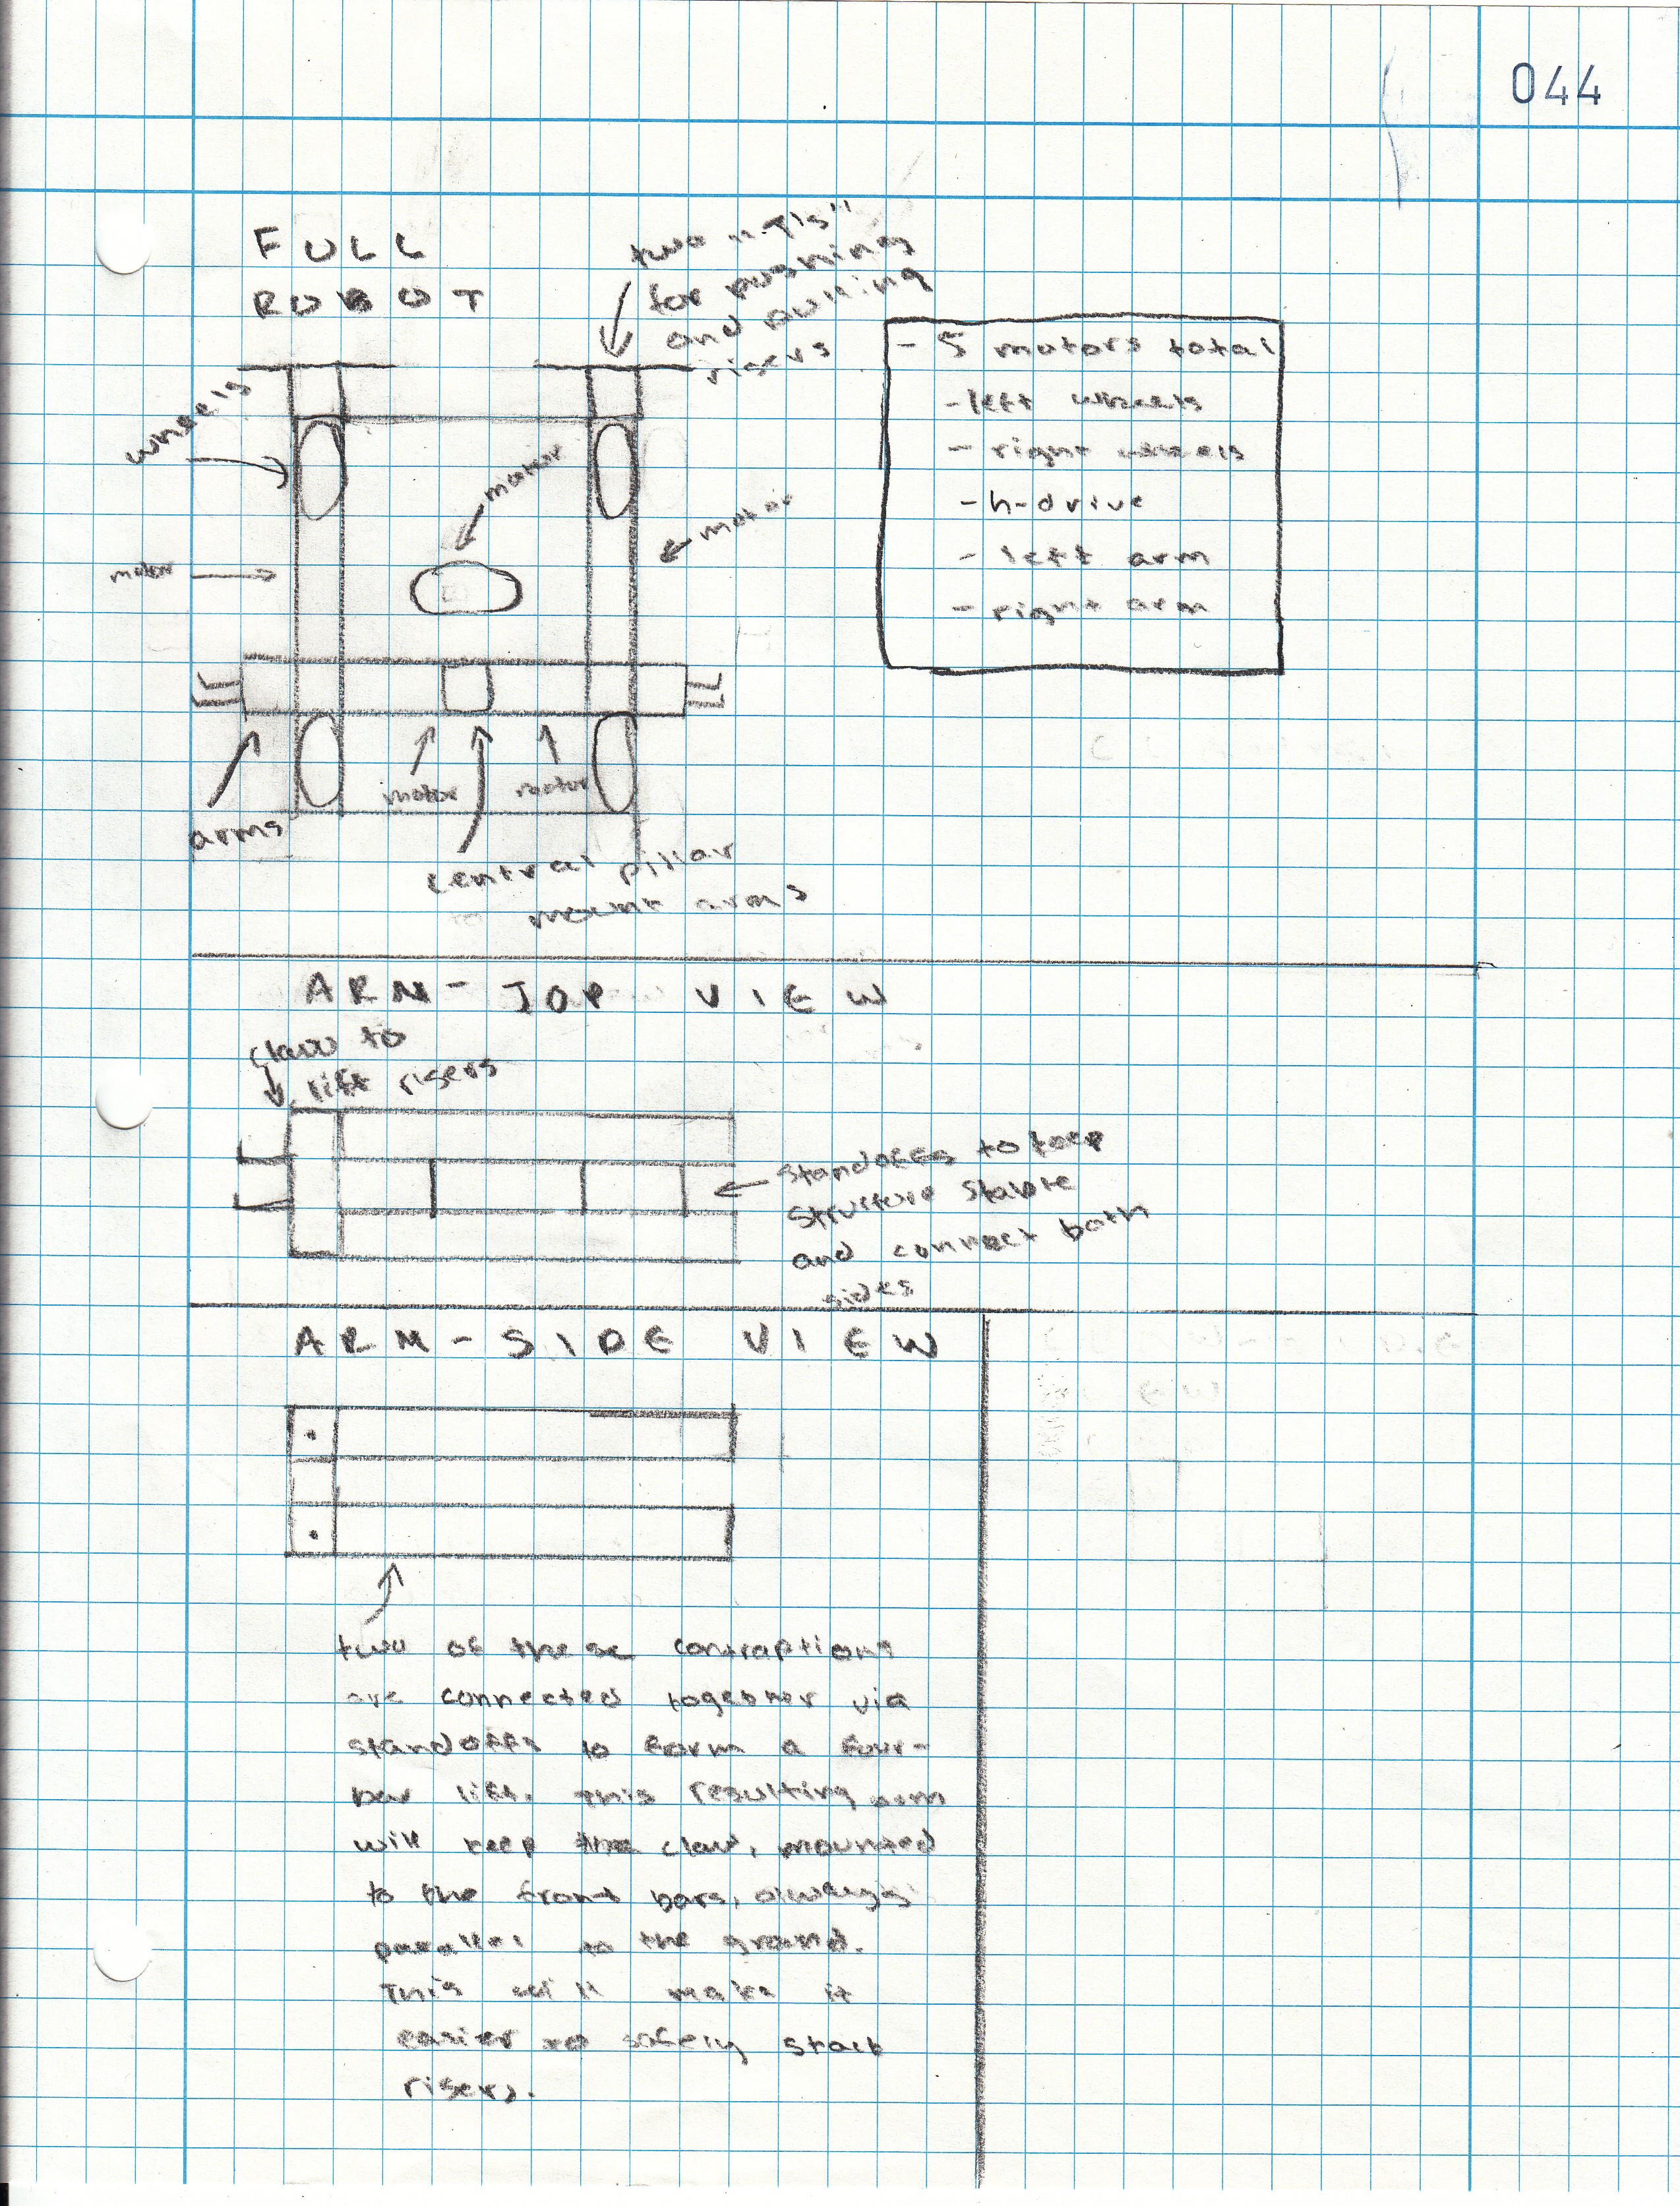 044
FULL
ROBOT
two "T's"
for pushing
and pulling
risers
wheels
motor
motor
motor
arms
motor
motor
central pillar
to mount arms
- 5 motors total
- left wheels
- right wheels
- h-drive
- left arm
- right arm
ARM - TOP VIEW
claw to
lift risers
standoffs to keep
structure stable
and connect both
sides
ARM - SIDE VIEW
two of these contraptions
are connected together via
standoffs to form a four-
bar lift. This resulting arm
will keep the claw, mounted
to the front bars, always
parallel to the ground.
This will make it
easier to safely stack
risers.